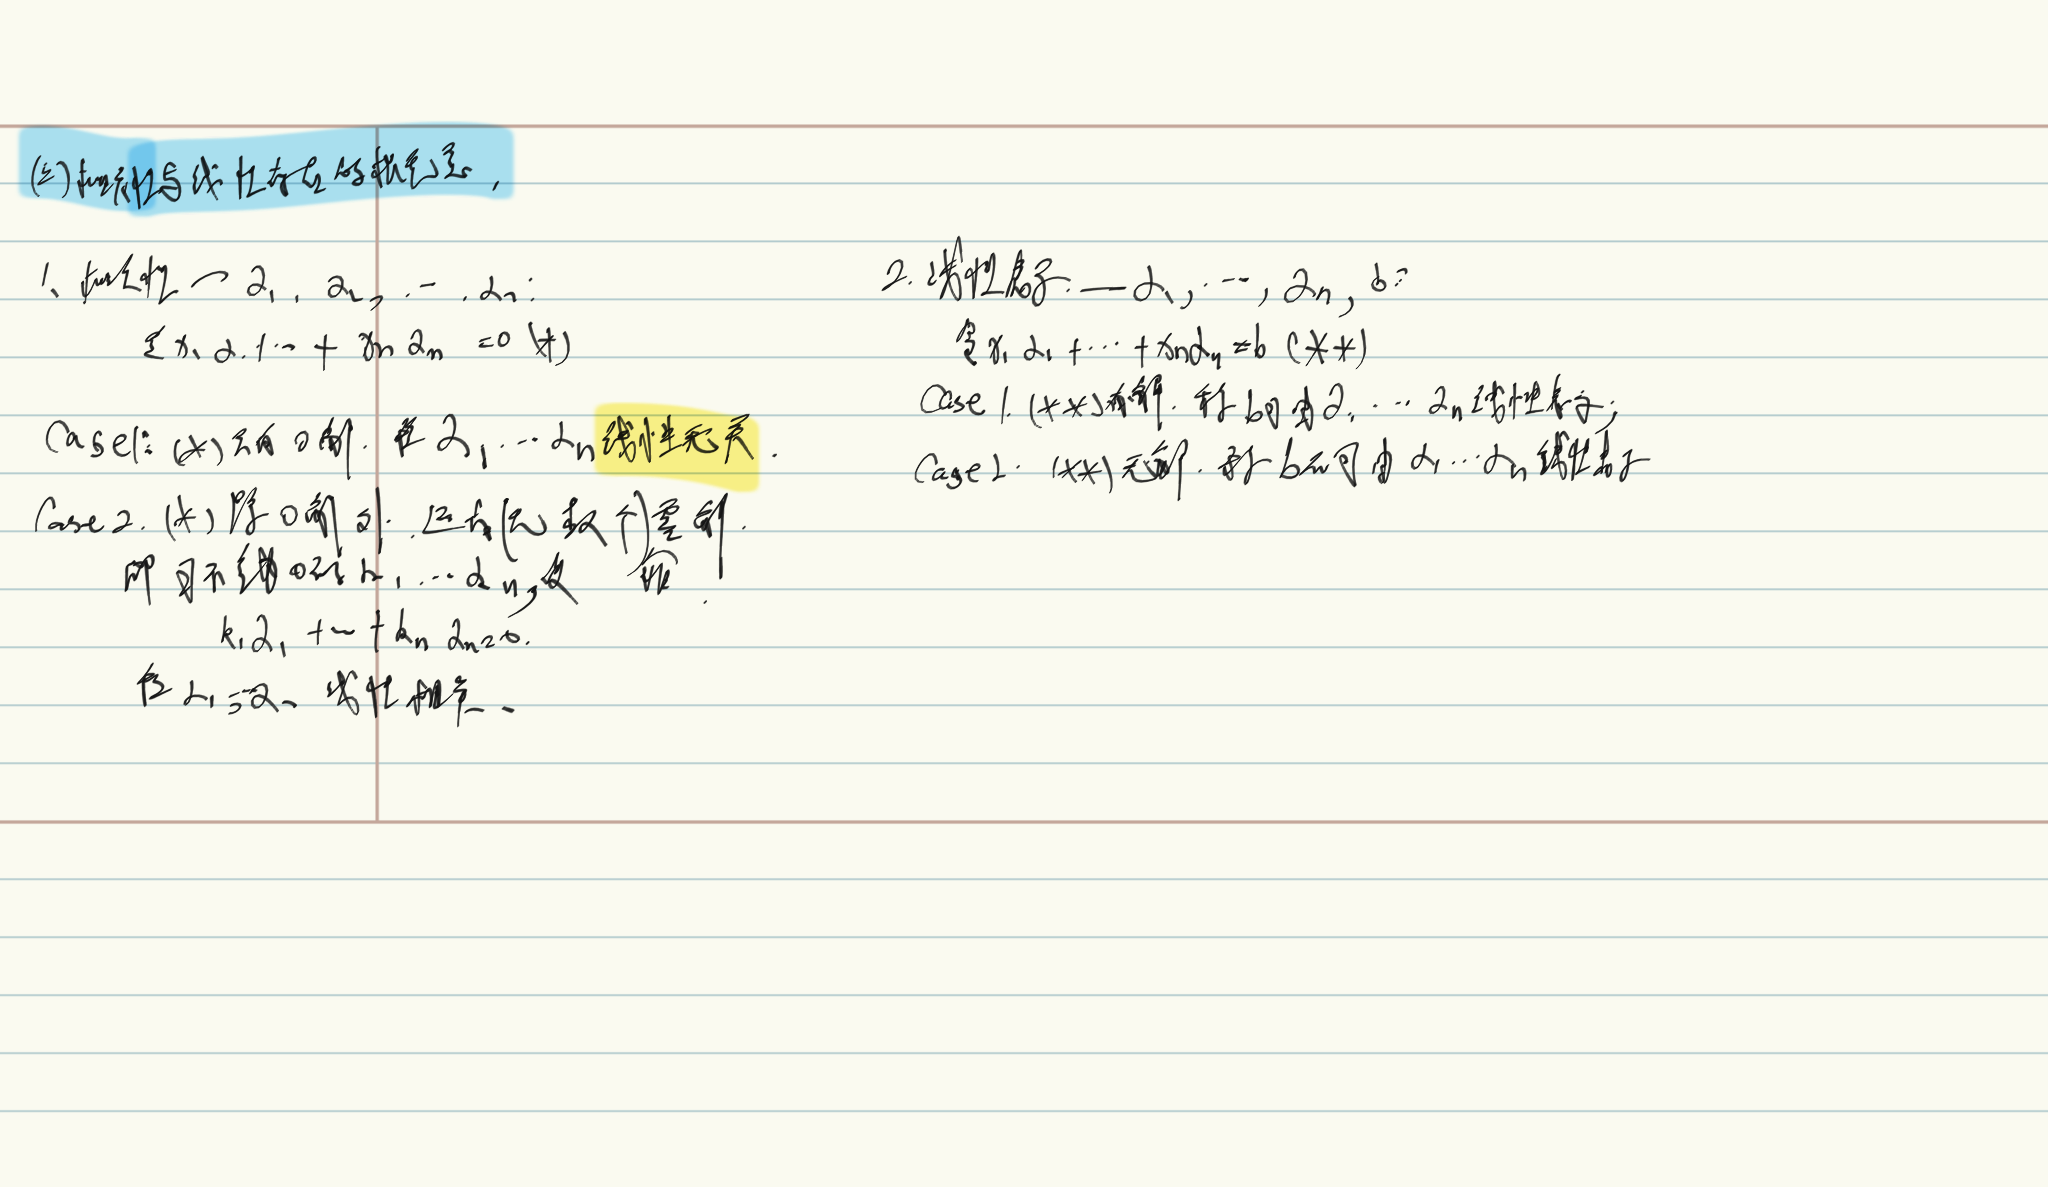 (三)相关性与线性存在的概念,
1、相关性 — α₁, α₂, …, αₙ:
令 x₁α₁ + … + xₙαₙ = 0 (*)
Case1: (*) 只有0解. 称 α₁ … αₙ 线性无关.
Case 2. (*) 除0解外. 还有(无数个)零解.
即 可 不 0 α₁, … αₙ, 使
k₁α₁ + … + kₙαₙ = 0.
称 α₁, … αₙ 线性相关.
2. 线性表示 — α₁, …, αₙ, b:
令 x₁α₁ + … + xₙαₙ = b (**)
Case 1. (**)有解. 称 b可由 α₁ … αₙ 线性表示;
Case 2. (**)无解. 称 b不可由 α₁ … αₙ 线性表示